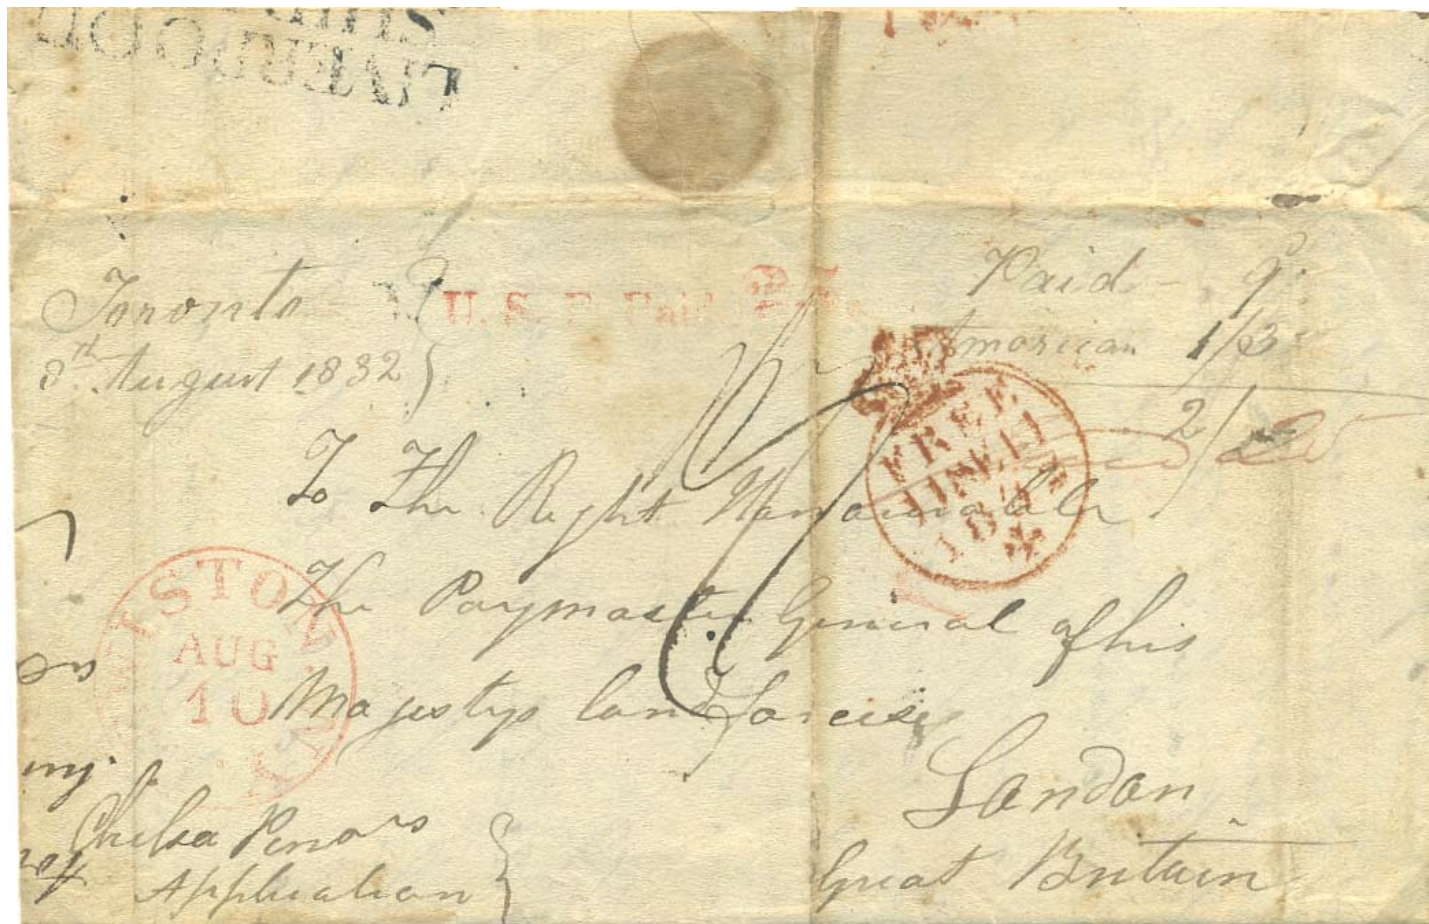 SHIP
LIVERPOOL
Toronto
8th August 1832
U.S. P. Paid
Paid - 9
American 1/3
2/
FREE
11 SE 11
To The Right Honourable
The Paymaster General of his
Majestys land forces
London
Great Britain
LEWISTON
AUG
10
N.Y.
my.
Chelsea Pensrs
Application